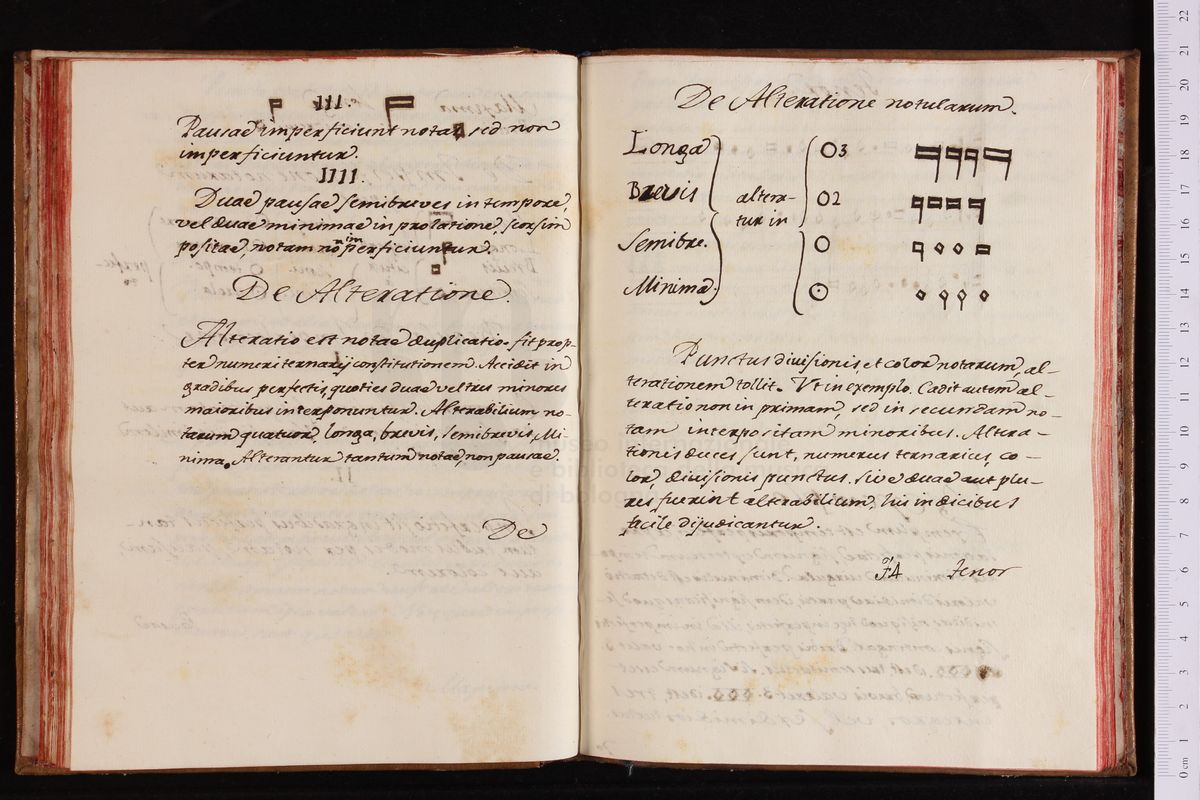 III.
Pausae imperficiunt notas, sed non
imperficiuntur.
IIII.
Duae pausae semibreves in tempore,
vel duae minimae in prolatione, seorsim
positae, notam non perficiuntur.
De Alteratione.
Alteratio est notae duplicatio. fit prop-
ter numeri ternarij constitutionem. Accidit in
gradibus perfectis, quoties duae vel tres minores
maioribus interponuntur. Alterabilium no-
tarum quatuor, longa, brevis, semibrevis, Mi
nima. Alterantur tantum notae, non pausae.
De
De Alteratione notularum.
Longa
Brevis
Semibre.
Minima
altera-
tur in
O3
O2
O
Punctus divisionis et color notarum, al-
terationem tollit. Vt in exemplo. Cadit autem al-
teratio non in primam, sed in secundam no-
tam interpositam minoribus. Altera-
tionis duces sunt, numerus ternarius, co-
lor, divisionis punctus. sive duae aut plu-
res fuerint alterabilium, his indicibus
facile dijudicantur.
F4 Tenor
museo internazionale
e biblioteca della musica
di bologna
0 cm 1 2 3 4 5 6 7 8 9 10 11 12 13 14 15 16 17 18 19 20 21 22